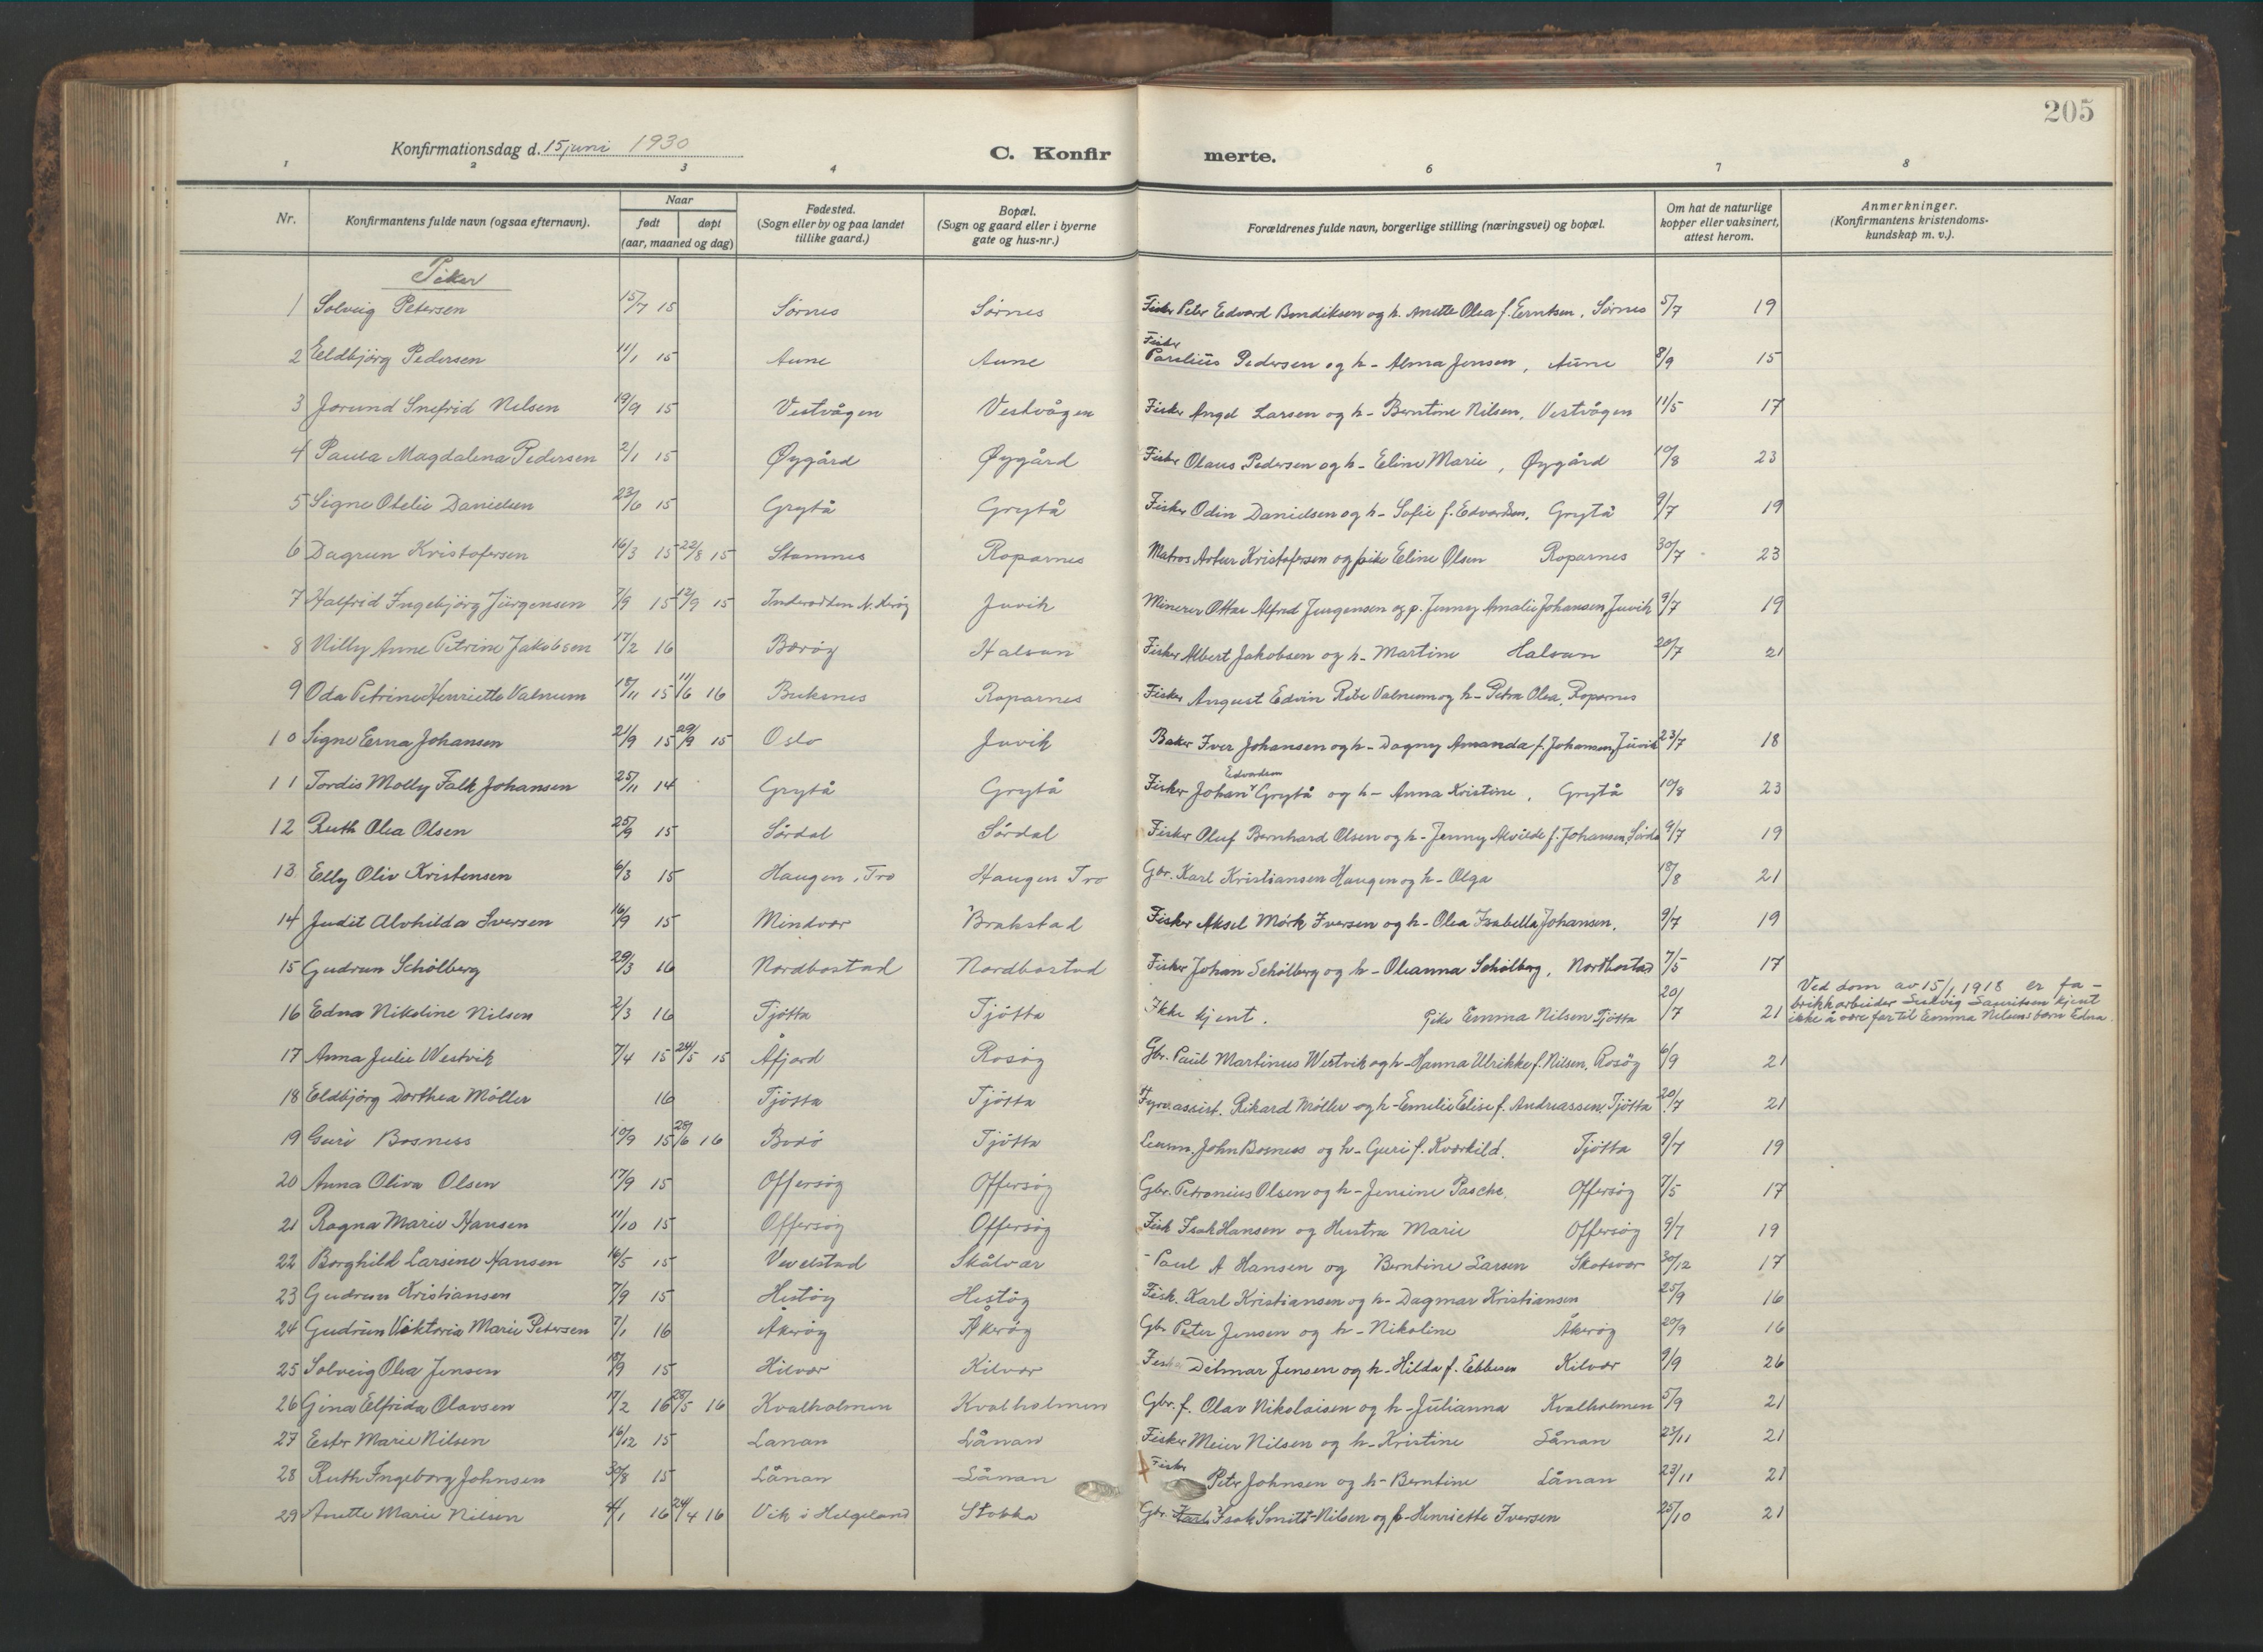 205
Konfirmationsdag d. 15 juni 1930
C. Konfirmerte.
1 2 3 4 6 7 8
Nr. Konfirmantens fulde navn (ogsaa efternavn). Naar født døpt (aar, maaned og dag) Fødested. (Sogn eller by og paa landet tillike gaard.) Bopæl. (Sogn og gaard eller i byerne gate og hus-nr.) Forældrenes fulde navn, borgerlige stilling (næringsvei) og bopæl. Om hat de naturlige kopper eller vaksinert, attest herom. Anmerkninger. (Konfirmantens kristendoms-kundskap m. v.).
Piker
1 Solveig Petersen 15/7 15 Sørnes Sørnes Fisker Peter Edvard Bendiksen og h. Anette Olea f. Erntsen, Sørnes 5/7 19
2 Eeldbjörg Pedersen 11/1 15 Aune Aune Fisker Parelius Pedersen og h- Alma Jensen, Aune 8/9 15
3 Jorund Snefrid Nilsen 19/9 15 Vestvågen Vestvågen Fisker Angel Larsen og h- Berntine Nilsen, Vestvågen 11/5 17
4 Paula Magdalena Pedersen 2/1 15 Øygård Øygård Fisker Olaus Pedersen og h- Eline Marie, Øygård 10/8 23
5 Signe Otelie Danielsen 23/6 15 Grytå Grytå Fisker Odin Danielsen og h- Sofie f. Edvardsen, Grytå 9/7 19
6 Dagrun Kristofersen 16/3 15 22/8 15 Stamnes Roparnes Matros Artur Kristofersen og pike Eline Olsen Roparnes 30/7 23
7 Halfrid Ingebjörg Jürgensen 7/9 15 12/9 15 Juvik Minerer Ottar Alfred Jurgensen og p. Jenny Amalie Johansen, Juvik 9/7 19
8 Nilly Anne Petrine Jakobsen 17/2 16 Bærøy Halsan Fisker Albert Jakobsen og h- Martine Halsan 20/7 21
9 Oda Petrine Henriette Valnum 18/11 15 11/6 16 Buksnes Roparnes Fisker August Edvin Rebe Valnum og h- Petra Olea, Roparnes
10 Signe Erna Johansen 21/9 15 29/9 15 Oslo Juvik Baker Iver Johansen og h- Dagny Amanda f. Johansen, Juvik 23/7 18
11 Tordis Molly Falk Johansen 25/11 14 Grytå Grytå Fisker Johan Edvardsen Grytå og h- Anna Kristine, Grytå 10/8 23
12 Ruth Olea Olsen 25/9 15 Sørdal Sørdal Fisker Oluf Bernhard Olsen og h- Jenny Alvilde f. Johansen, Sørdal 9/7 19
13 Elly Oliv Kristensen 6/3 15 Haugen, Tro Haugen Tro Gbr. Karl Kristiansen Haugen og h- Olga 18/8 21
14 Judit Alvhilda Iversen 16/9 15 Mindvær Brakstad Fisker Aksel Mørk Iversen og h- Olea Isabella Johansen, 9/7 19
15 Gudrun Schölberg 29/3 16 Nordbostad Nordbostad Fisker Johan Schölberg og h- Oleanna Schölberg, Nordbostad 7/5 17
16 Edna Nikoline Nilsen 2/3 16 Tjötta Tjötta Ikke kjent. Pike Emma Nilsen Tjötta 20/7 21 Ved dom av 15/1 1918 er fa-
brikkarbeider Ludvig Lauritsen kjent
ikke å være far til Emma Nilsens barn Edna.
17 Anna Julie Westvik 7/4 15 24/5 15 Åfjord Rosöy Gbr. Paul Martinus Westvik og h- Hanna Ulrikke f. Nilsen, Rosöy 6/9 21
18 Eldbjörg Dorthea Möller 16 Tjötta Tjötta Fyrassist. Rikard Möller og h- Emelie Elise f. Andreassen, Tjötta 20/7 21
19 Guri Bosness 10/9 15 28/6 16 Bodö Tjötta Lensm. John Bosness og h- Guri f. Kværkild. Tjötta 9/7 19
20 Anna Oliva Olsen 17/9 15 Offersöy Offersöy Gbr. Petronius Olsen og h- Jensine Pasche, Offersöy 7/5 17
21 Ragna Marie Hansen 11/10 15 Offersöy Offersöy Fisk Isak Hansen og Hustru Marie Offersöy 9/7 19
22 Borghild Larsine Hansen 16/5 15 Vevelstad Skålvær - Paul A Hansen og Berntine Larsen 30/12 17
23 Gudrun Kristiansen 7/9 15 Hestöy Hestöy Fisk. Karl Kristiansen og h- Dagmar Kristiansen 25/9 16
24 Gudrun Viktoria Marie Petersen 7/1 16 Åkeröy Åkeröy Gbr Peter Jensen og h- Nikoline Åkeröy 20/9 16
25 Solveig Olea Jensen 18/9 15 Kilvær Kilvær Fisker Ditmar Jensen og h- Hilda f. Ebbesen Kilvær 9/9 26
26 Gina Elfrida Olavsen 17/2 16 28/5 16 Kvalholmen Kvalholmen Gbr. f. Olav Nikolaisen og h- Julianna Kvalholmen 5/9 21
27 Ester Marie Nilsen 16/12 15 Lanan Lånan Fisker Meier Nilsen og h- Kristine Lånan 23/11 21
28 Ruth Ingeborg Johnsen 30/8 15 Lånan Lånan Fisker Peter Johnsen og h- Berntine Lånan 23/11 21
29 Anette Marie Nilsen 4/1 16 24/4 16 Vik i Helgeland Stokka Gbr. Isak Smitt-Nilsen og h- Henriette Iversen 25/10 21